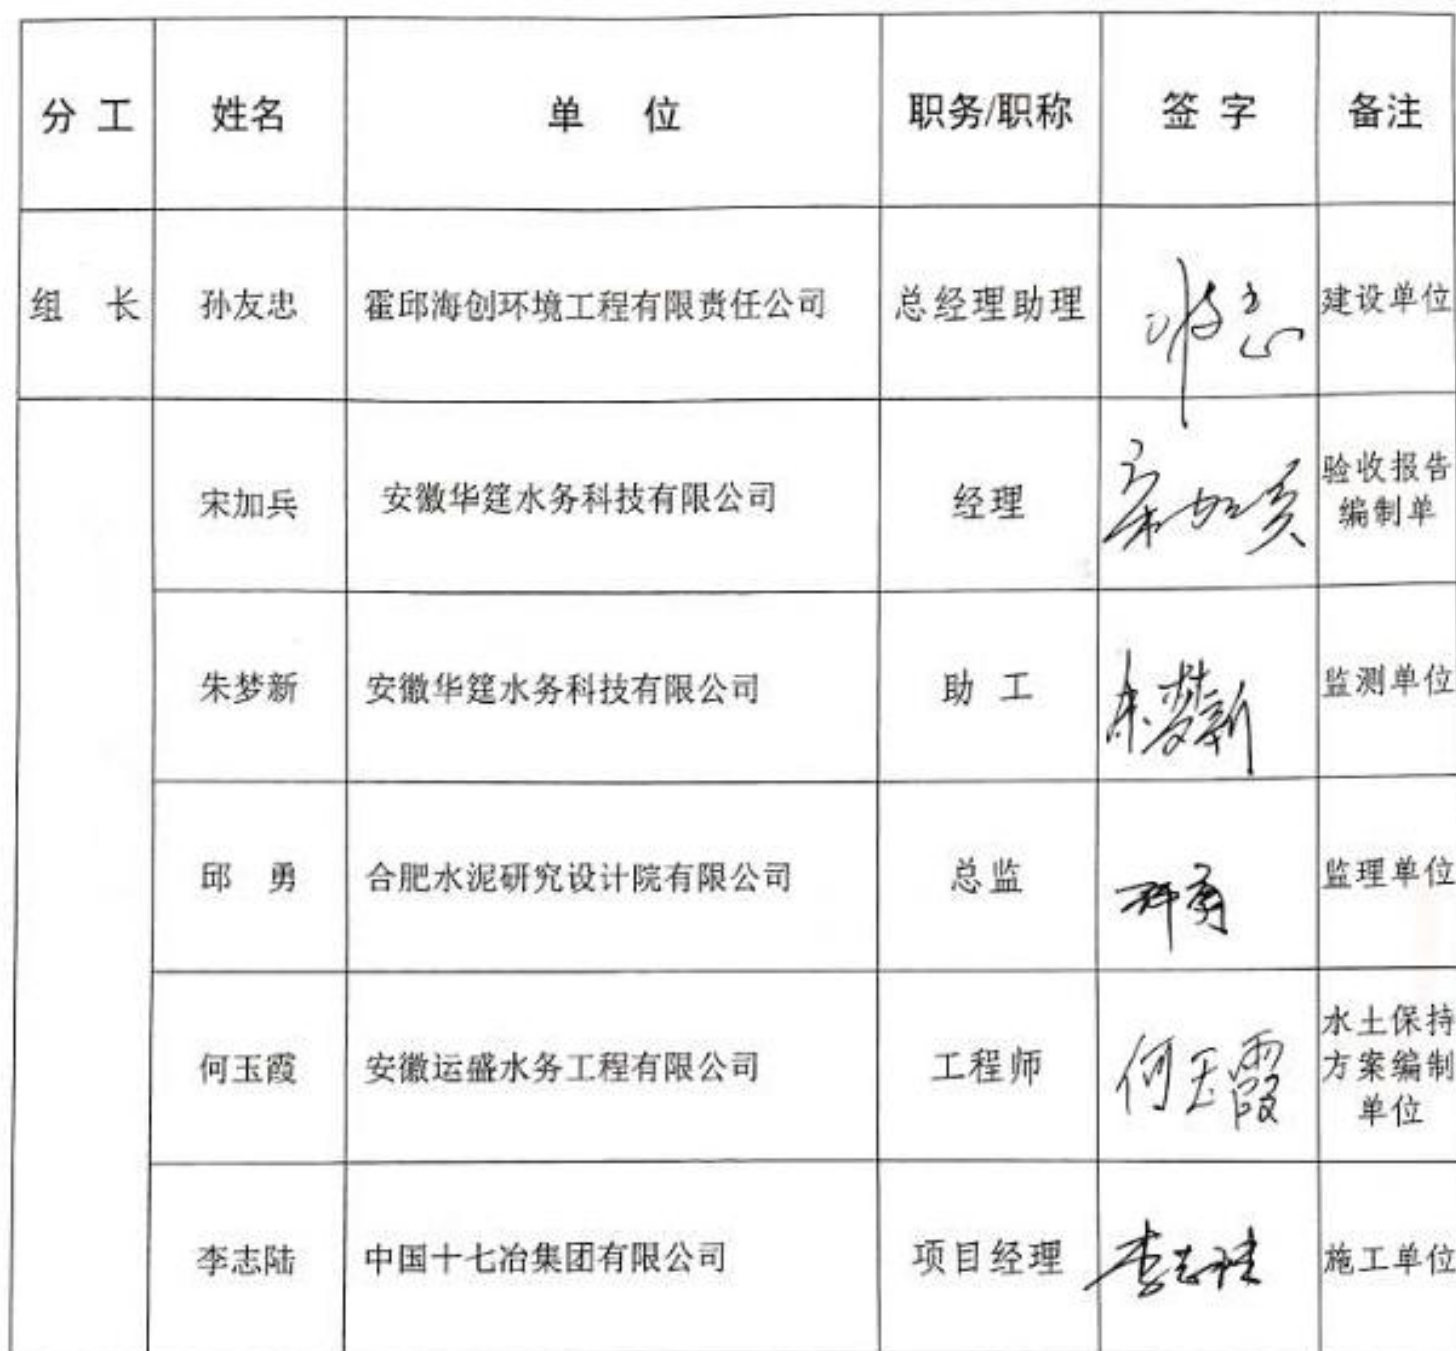 分 工 姓名 单 位 职务/职称 签 字 备注
组 长 孙友忠 霍邱海创环境工程有限责任公司 总经理助理 建设单位
宋加兵 安徽华筳水务科技有限公司 经理 宋加兵 验收报告
编制单
朱梦新 安徽华筳水务科技有限公司 助 工 朱梦新 监测单位
邱 勇 合肥水泥研究设计院有限公司 总监 邱勇 监理单位
何玉霞 安徽运盛水务工程有限公司 工程师 何玉霞 水土保持
方案编制
单位
李志陆 中国十七冶集团有限公司 项目经理 李志陆 施工单位